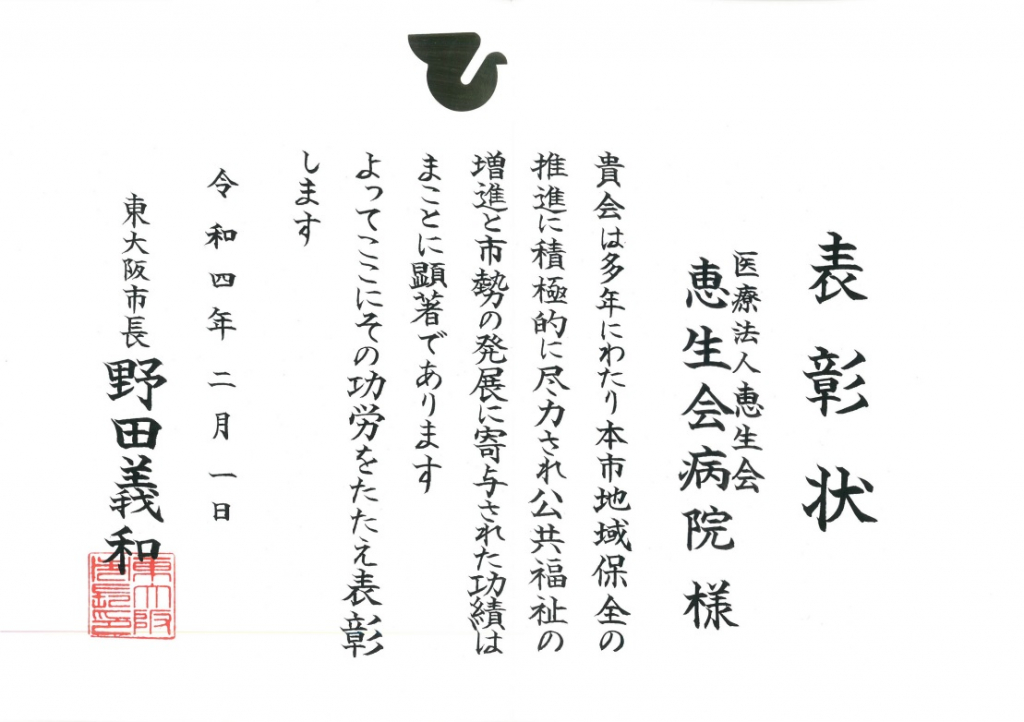 表彰状
医療法人恵生会
恵生会病院 様
貴会は多年にわたり本市地域保全の
推進に積極的に尽力され公共福祉の
増進と市勢の発展に寄与された功績は
まことに顕著であります
よってここにその功労をたたえ表彰
します
令和四年二月一日
東大阪市長 野田義和
東大阪市長印